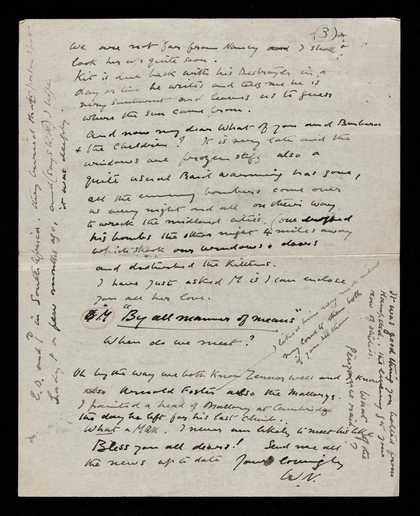 (3)
We are not far from Nancy and I shall
look her up quite soon.
Kit is due back with his Destroyer in a
day or two he writes and tells me he is
very sunburnt and leaves us to guess
where the sun came from.
And now my dear What of you and Barbara
& the Children? It is very late and the
windows are frozen stiff also a
quite usual Raid warning has gone,
all the enemy bombers come over
us every night and all on their way
to wreck the midland cities. One dropped
his bombs the other night 4 miles away
which shook our windows & doors
and disturbed the Kittens.
I have just asked M is I can enclose
you all her love.
M "By all manner of means"
When do we meet?
Oh by the way we both know Zennor well and
also Arnold Foster also the Mallorys.
I painted a head of Mallory at Cambridge
the day he left for his last Climb.
What a Man. I never am likely to meet his like
Bless you all dears! Send me all
the news up to date Yours lovingly
W.N.
in South Africa. they arrived that
a few months ago, and
it was deeply
It was good thing you bolted from
Hampstead.
row of shries.
know What of the